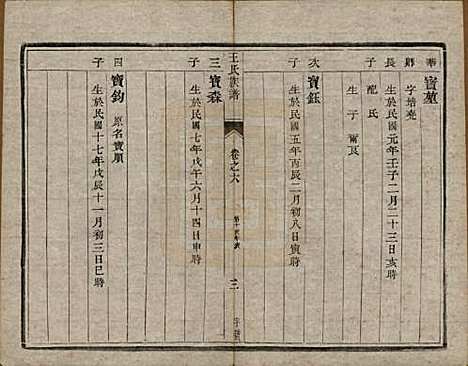 奉 寶堃
卿 字培堯
長 生於民國元年壬子二月二十三日亥時
子 配氏
生子 甭良
次 寶鈺
子 生於民國五年丙辰二月初八日寅時
王氏族譜
卷之六
三
三 寶森
子 生於民國七年戊午六月十四日申時
四 寶鈞 原名寶順
子 生於民國十七年戊辰十一月初三日巳時